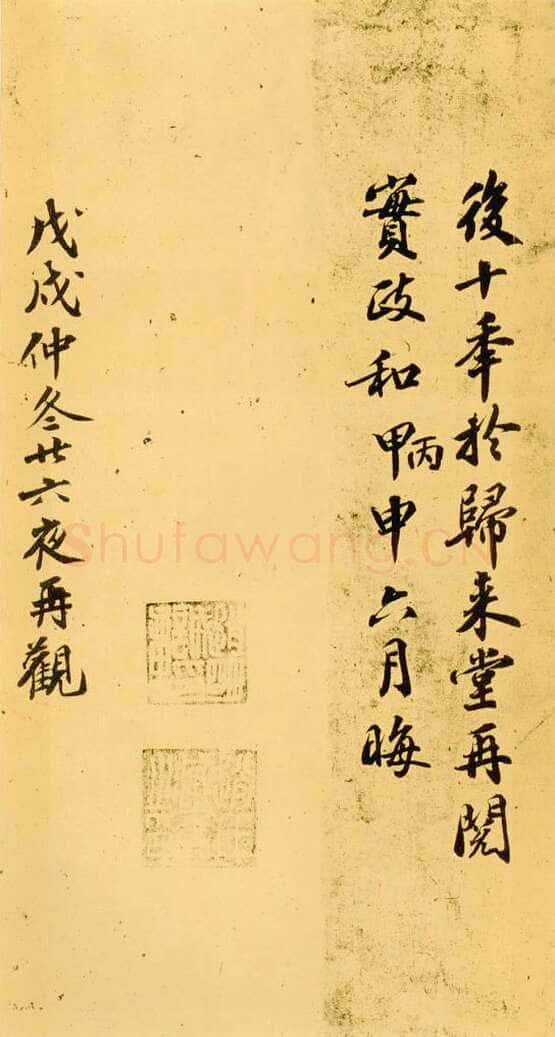 後十年於歸来堂再閱
實政和甲丙申六月晦
戊戌仲冬廿六夜再觀
Shufawang.CN